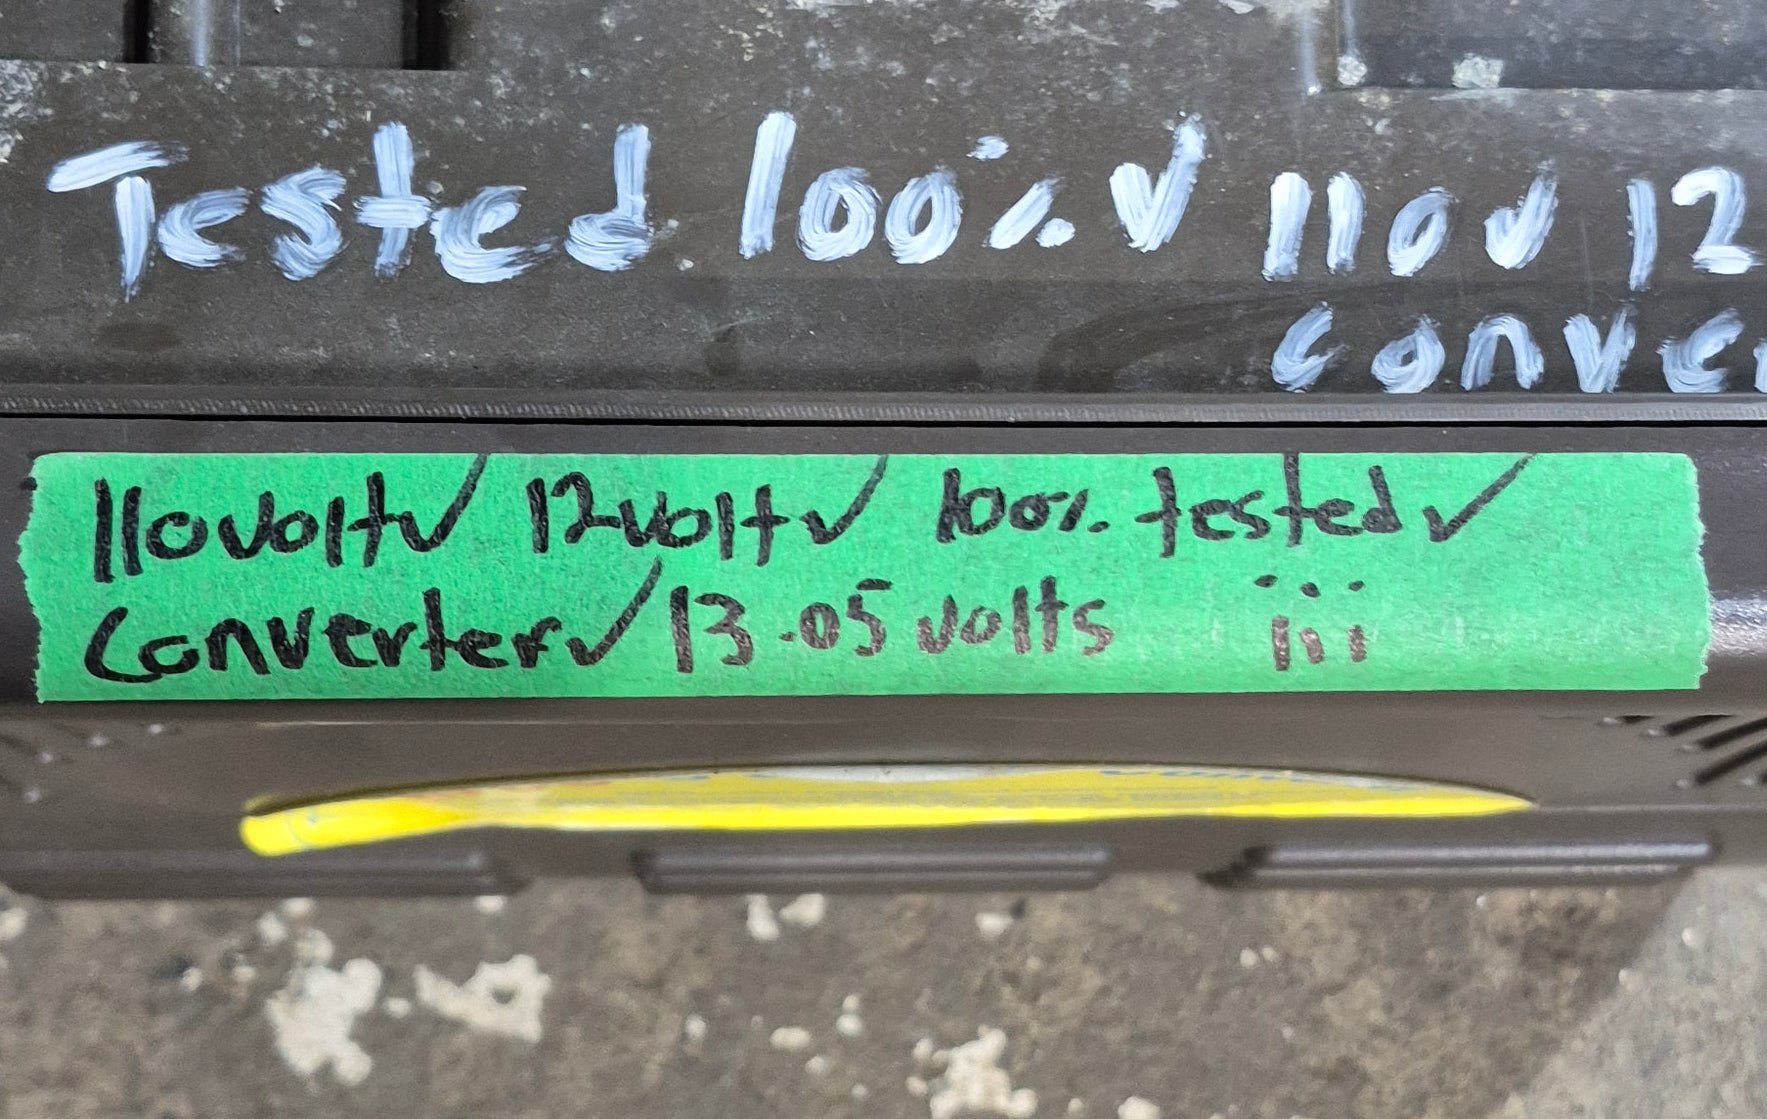 Tested 100% ✓ 110 ✓ 12
conver
110 volt ✓ 12 volt ✓ 100% tested ✓
Converter ✓ 13.05 volts iii